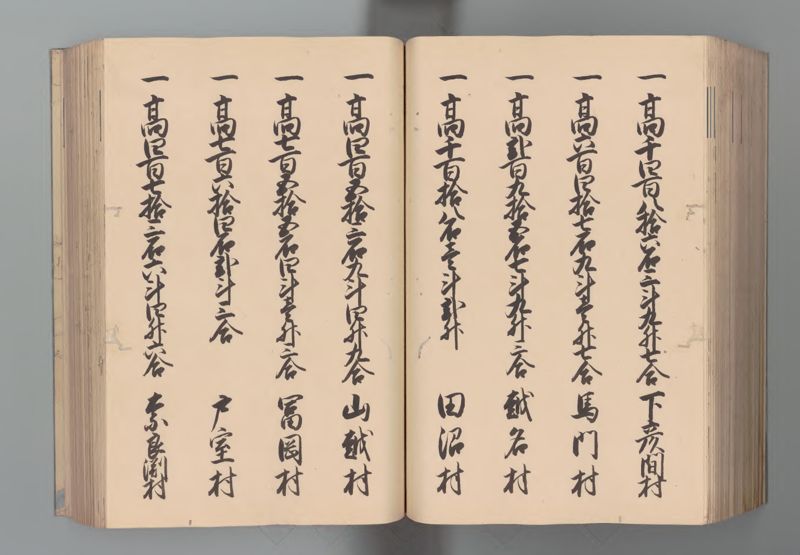 一高千四百八拾六石二斗九升七合 下彦間村
一高六百四拾七石九斗壱升七合 馬門村
一高弐百九拾五石七斗九升二合 越名村
一高千百拾八石壱斗弐升 田沼村
一高四百五拾二石九斗四升九合 山越村
一高七百五拾五石四斗壱升二合 冨岡村
一高七百六拾四石弐斗二合 戸室村
一高四百七拾二石六斗四升六合 奈良渕村